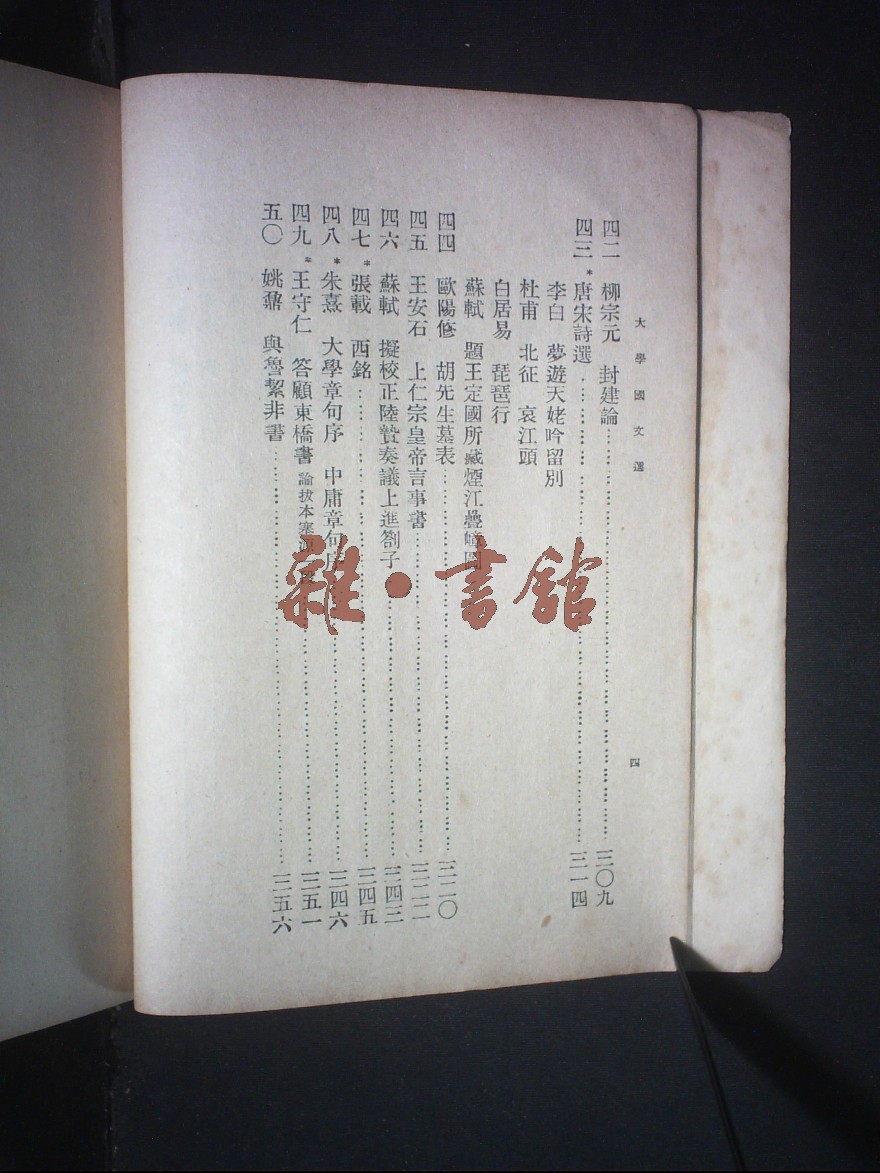 大學國文選
四
四二 柳宗元 封建論……三〇九
四三 *唐宋詩選……三一四
李白 夢遊天姥吟留別
杜甫 北征 哀江頭
白居易 琵琶行
蘇軾 題王定國所藏煙江疊嶂圖
四四 歐陽修 胡先生墓表……三二〇
四五 王安石 上仁宗皇帝言事書……三二二
四六 蘇軾 擬校正陸贄奏議上進劄子……三四三
四七 *張載 西銘……三四五
四八 *朱熹 大學章句序 中庸章句序……三四六
四九 *王守仁 答顧東橋書 論拔本塞源……三五一
五〇 姚鼐 與魯絜非書……三五六
雜·書館